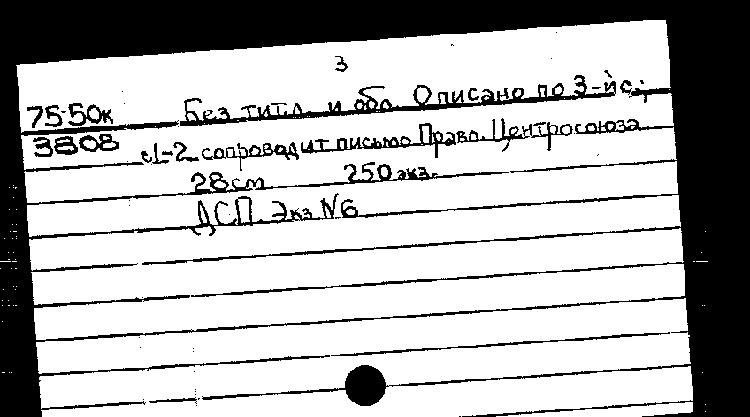 3
75-50к Без титл. и обл. Описано по 3-й с.;
3808 с1-2 сопроводит письмо Правл. Центросоюза
28 см 250 экз.
ДСП. Экз N6